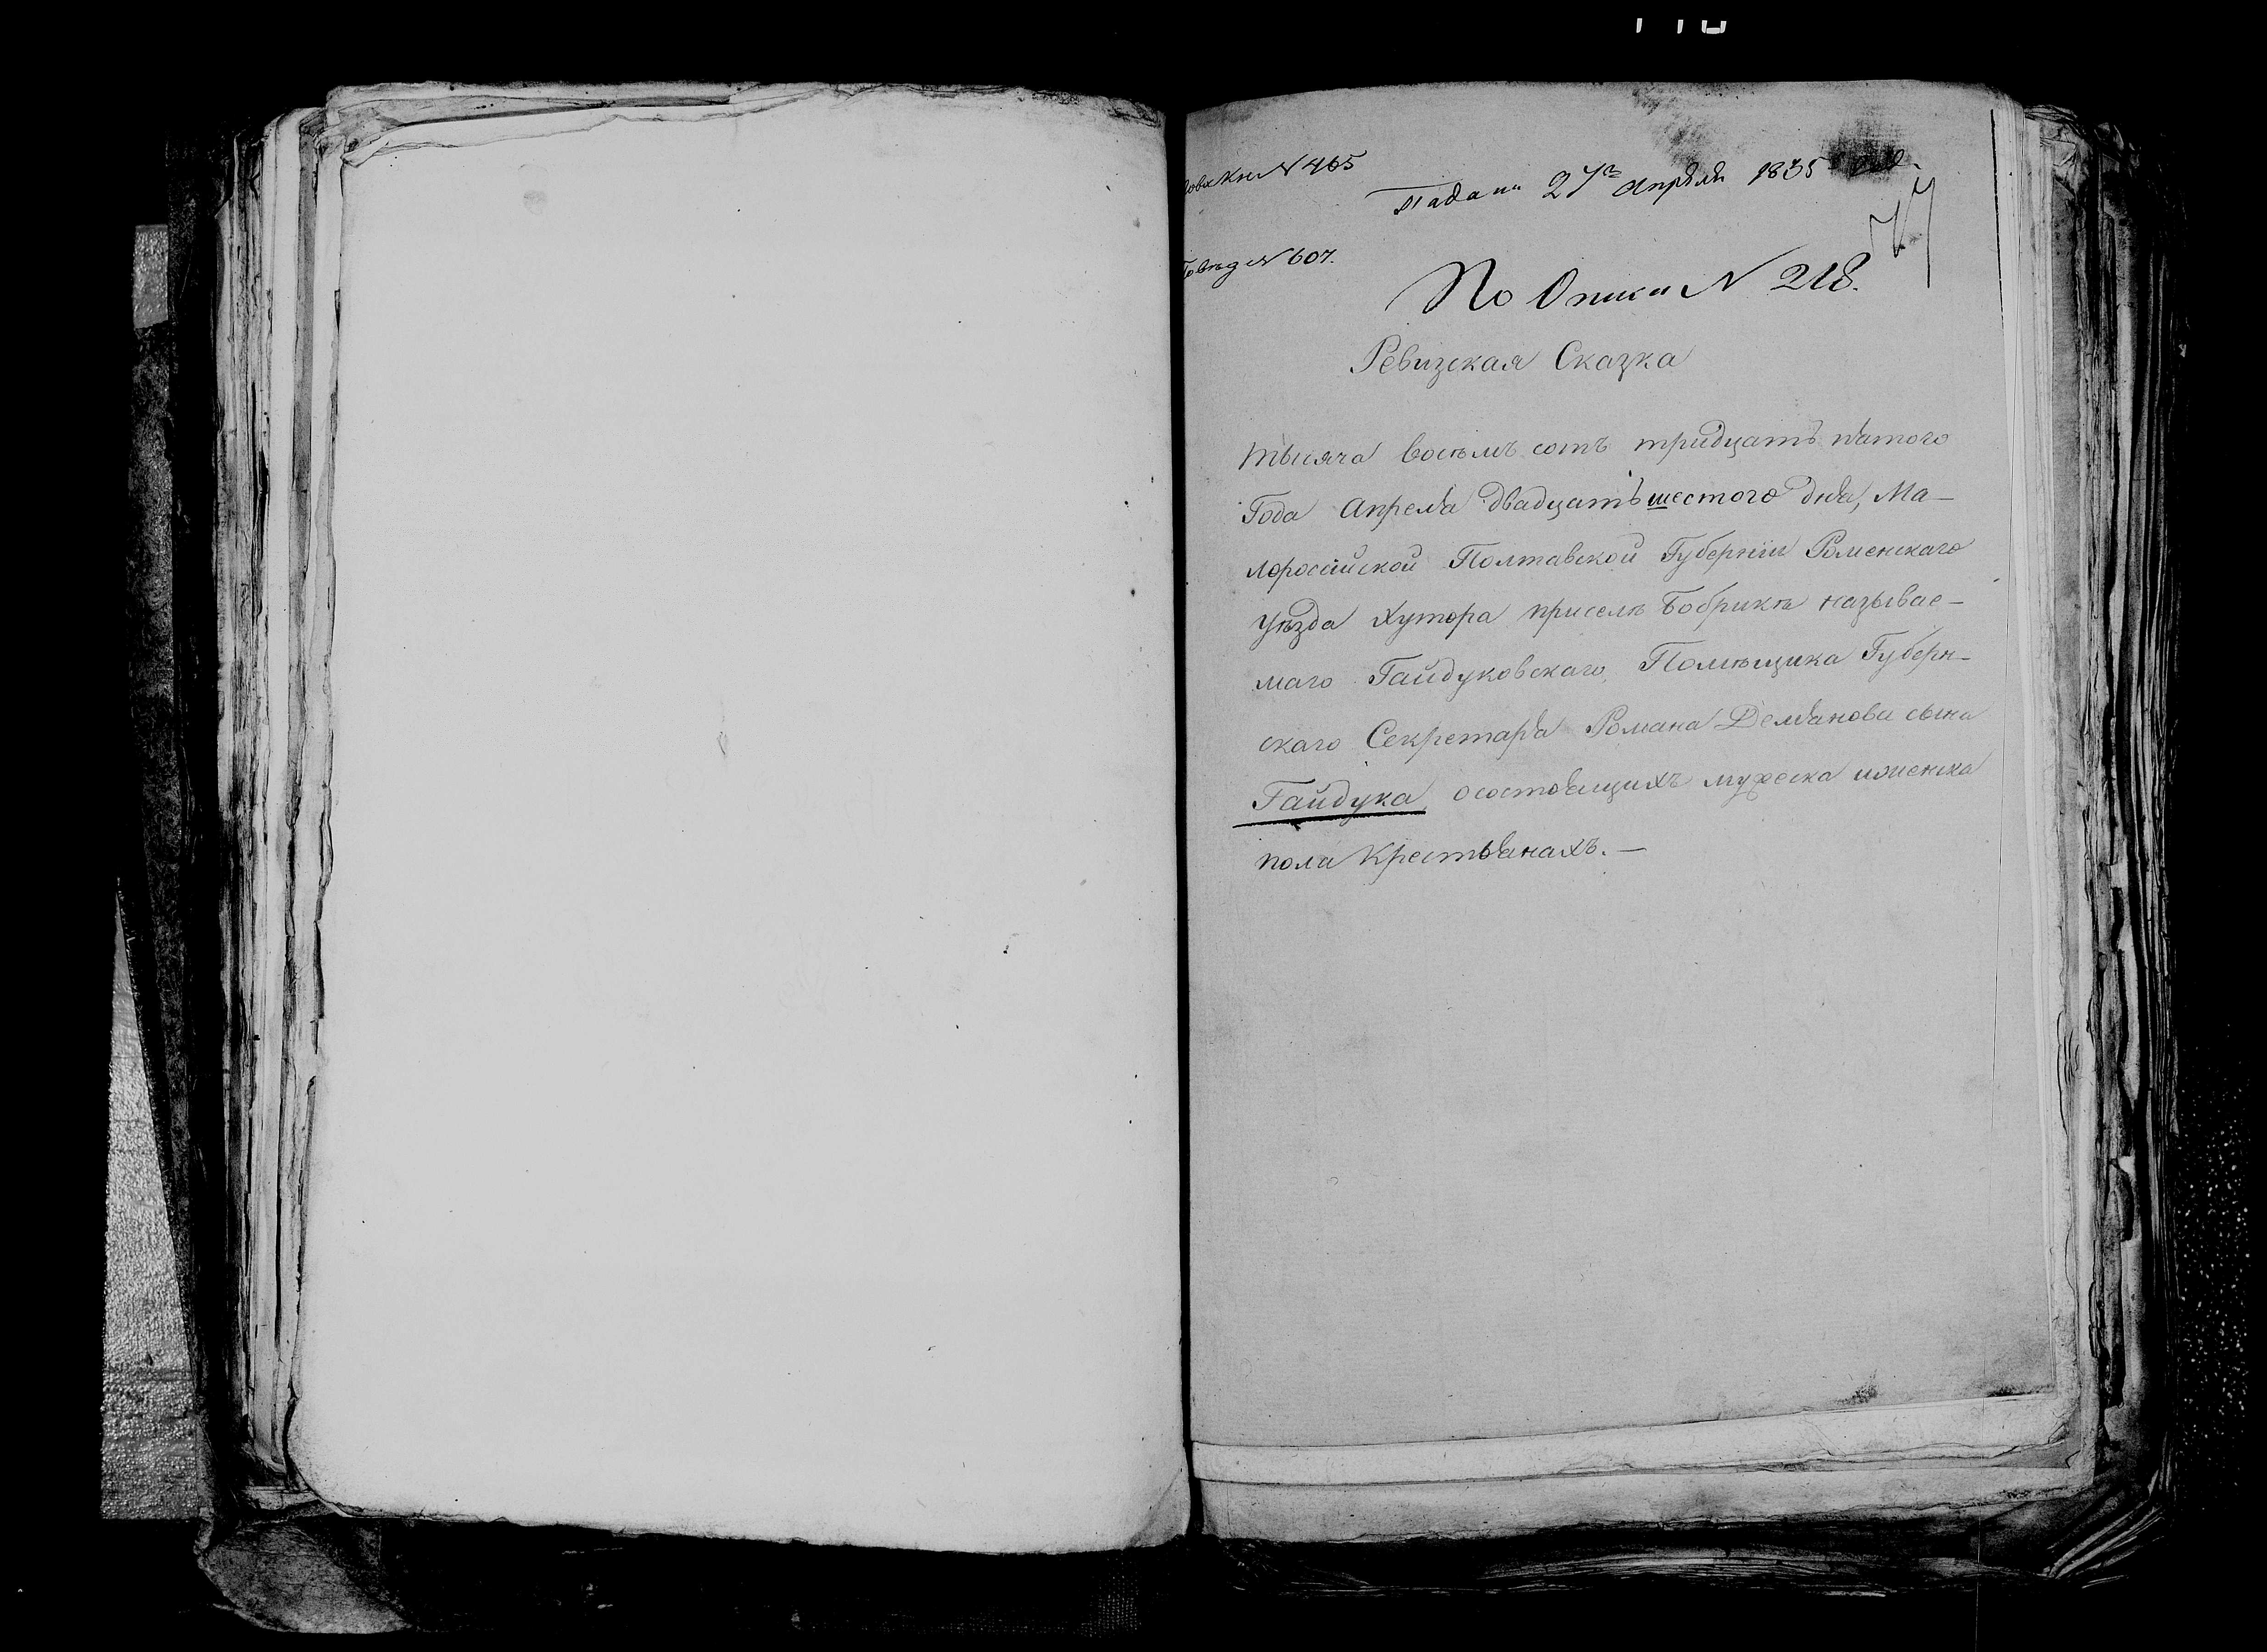 Кн N 465
Подана 27го Апреля 1835 года.
N 607.
77
По Описи N 218.
Ревизская Сказка
тысяча восемь сотъ тридцать пятого
Года Апреля двадцать шестого дня, Ма-
лоросӣйской Полтавской Губернӣи Роменскаго
уѣзда хутора приселѣ Бобрикѣ называе-
маго Гайдуковскаго, Помѣщика Губерн-
скаго Секретаря Романа Демянова сына
Гайдука, осостоящихъ мужеска иженска
пола Крестьянахъ.—